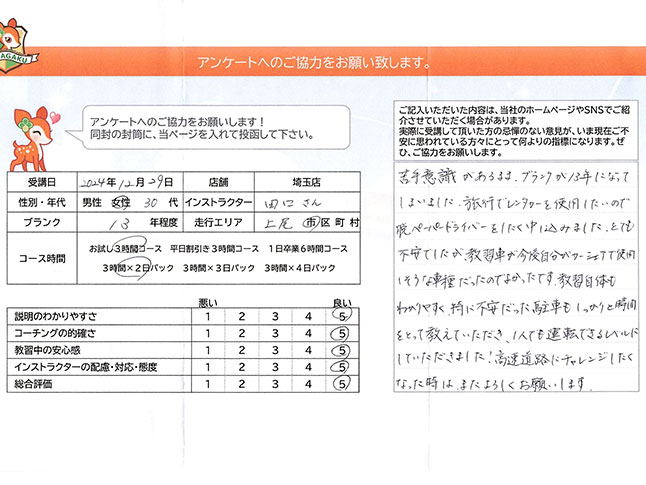 AGAKU
アンケートへのご協力をお願い致します。
アンケートへのご協力をお願いします！
同封の封筒に、当ページを入れて投函して下さい。
受講日 2024年12月29日 店舗 埼玉店
性別・年代 男性 女性 30 代 インストラクター 田口 さん
ブランク 13 年程度 走行エリア 上尾 市区町村
コース時間
お試し3時間コース 平日割引き3時間コース 1日卒業6時間コース
3時間×2日パック 3時間×3日パック 3時間×4日パック
悪い 良い
説明のわかりやすさ 1 2 3 4 5
コーチングの的確さ 1 2 3 4 5
教習中の安心感 1 2 3 4 5
インストラクターの配慮・対応・態度 1 2 3 4 5
総合評価 1 2 3 4 5
ご記入いただいた内容は、当社のホームページやSNSでご紹
介させていただく場合があります。
実際に受講して頂いた方の忌憚のない意見が、いま現在ご不
安に思われている方々にとって何よりの指標になります。ぜ
ひ、ご協力をお願いします。
苦手意識があるまま、ブランクが13年になって
しまいました。旅行でレンタカーを使用したいので
脱ペーパードライバーをしたく申込みました。とても
不安でしたが、教習車が今後自分がカーシェアで使用
しそうな車種だったのでよかったです。教習自体も
わかりやすく、特に不安だった駐車もしっかりと時間
をとって教えていただき、1人でも運転できるレベルに
していただきました！高速道路にチャレンジしたく
なった時は、またよろしくお願いします。